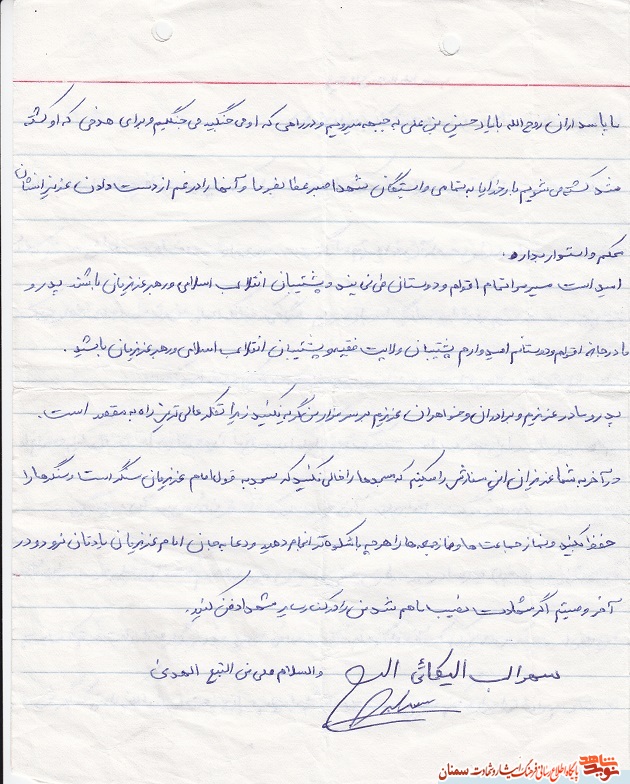 ما پاسداران روح الله با یاد حسین بن علی به جبهه میرویم و در راهی که او می جنگید می جنگیم و برای هدفی که او کشته
شد کشته می شویم بار خدایا به تمامی وابستگان شهدا صبر عطا بفرما و آنها را در غم از دست دادن عزیزانشان
محکم و استوار بدار.
امید است مسیر را تمام اقوام و دوستان طی نمایند و پشتیبان انقلاب اسلامی و رهبر عزیزمان باشند پدر و
مادر جان اقوام و دوستانم امیدوارم پشتیبان ولایت فقیه و پشتیبان انقلاب اسلامی و رهبر عزیزمان باشید.
پدر و مادر عزیزم و برادران و خواهران عزیزم بر سر مزار من گریه نکنید زیرا تفکر عالی ترین راه به مقصد است.
در آخر به شما عزیزان این سفارش را میکنم که مسجدها را خالی نکنید که مسجد به قول امام عزیزمان سنگر است و سنگرها را
حفظ کنید و نماز جماعت ها و نماز جمعه ها را هر چه باشکوه تر انجام دهید و دعا به جان امام عزیزمان یادتان نرود و در
آخر وصیتم اگر شهادت نصیب ما هم شد من را در کنار سایر شهدا دفن کنید.
سهراب الیکائی والسلام علی من التبع الهدی
نوید شاهد
پایگاه اطلاع رسانی فرهنگ ایثار و شهادت سمنان